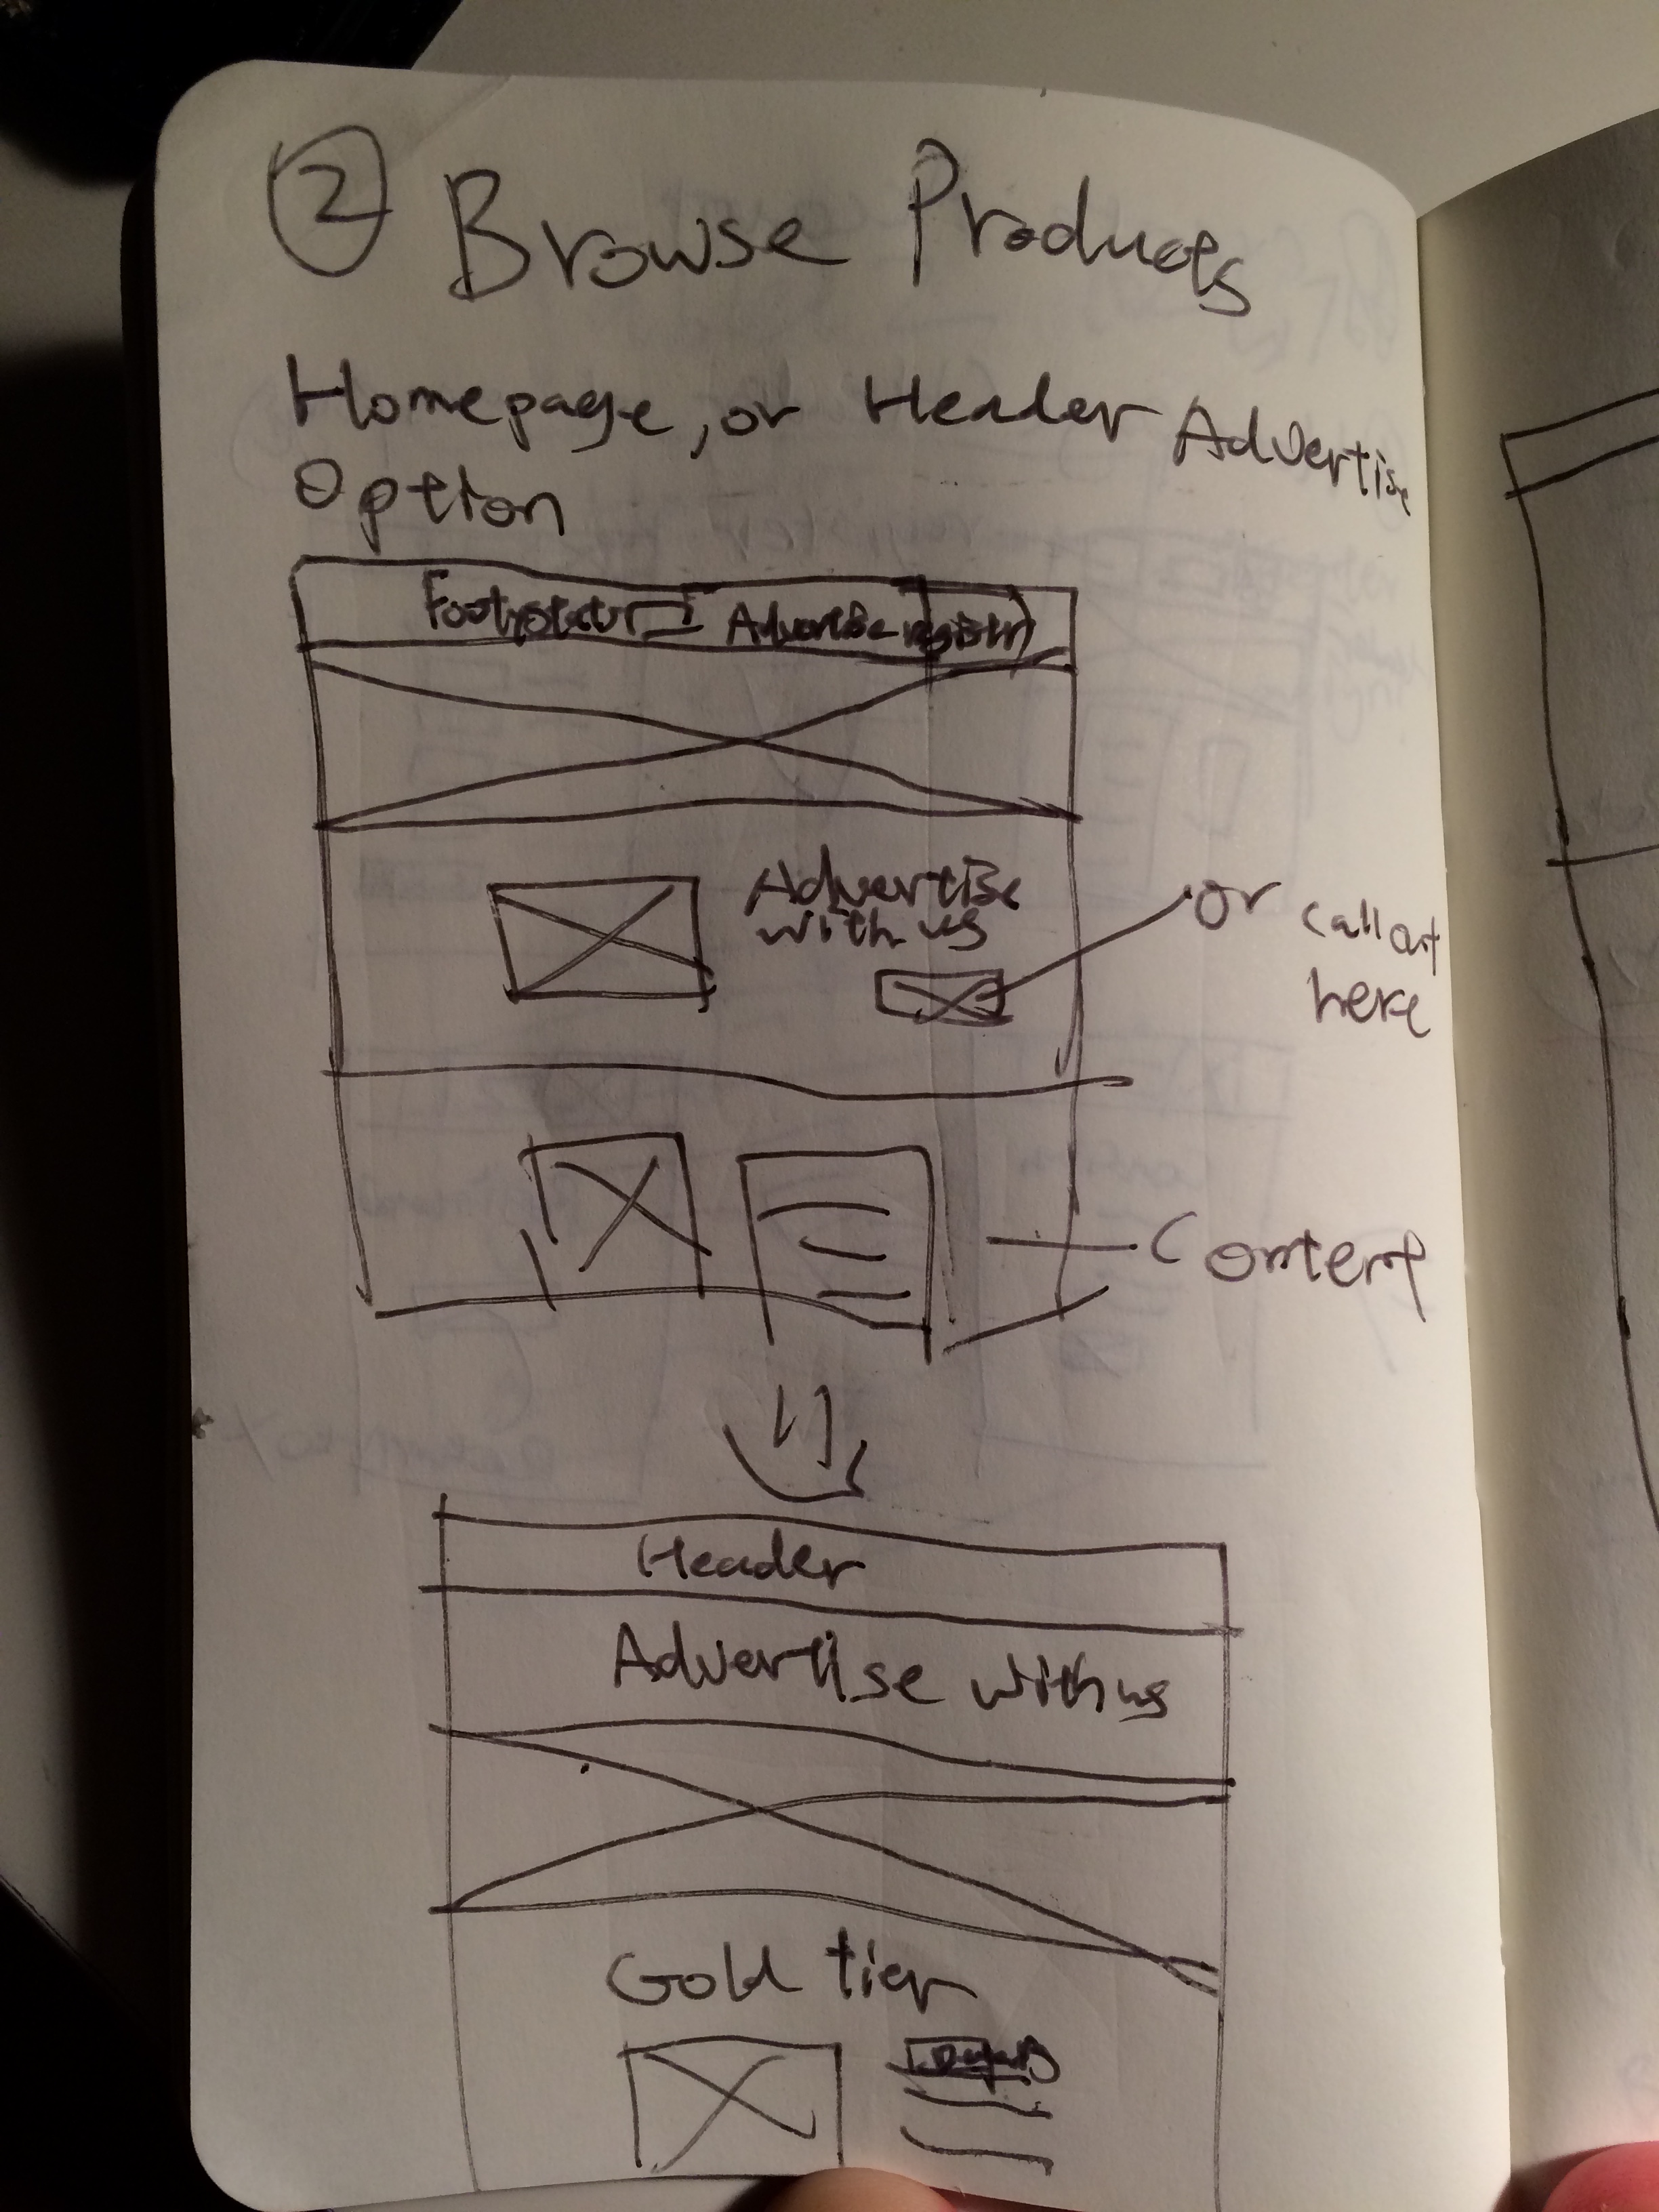 2 Browse Products
Homepage, or Header Advertise
Option
Advertise register
Advertise
with us
or call out
here
Content
Header
Advertise with us
Gold tier